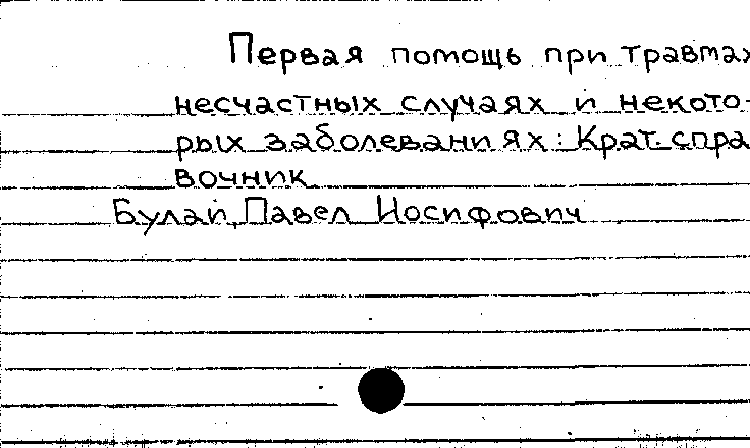 Первая помощь при травмах
несчастных случаях и некото-
рых заболеваниях: Крат. спра
вочник
Булай, Павел Иосифович